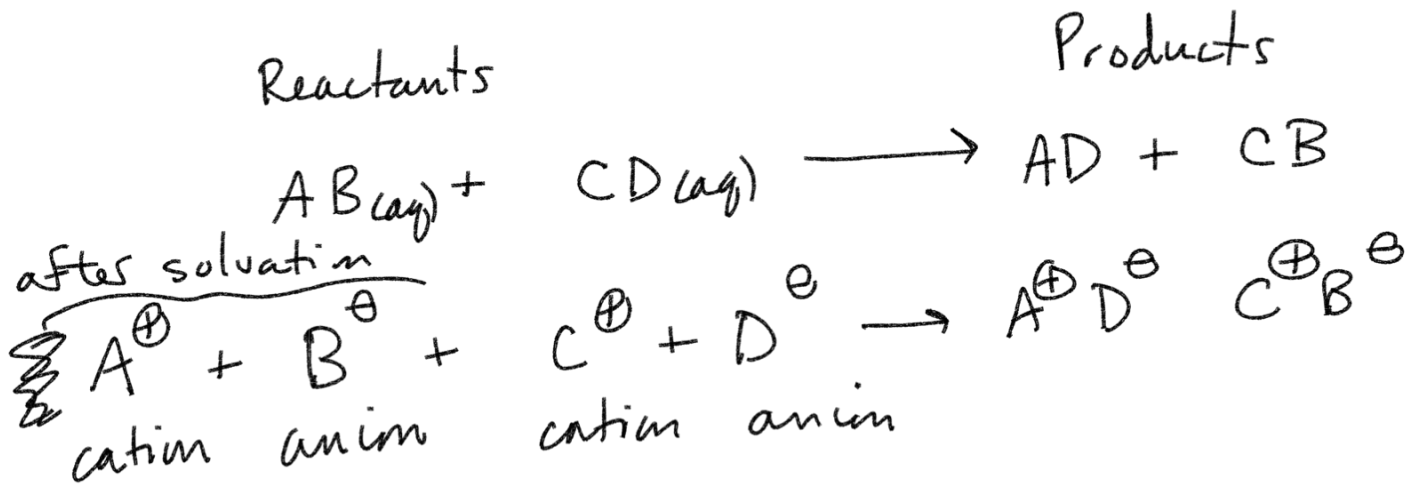 Reactants Products
AB(aq) + CD(aq) → AD + CB
after solvation
A⊕ + B⊖ + C⊕ + D⊖ → A⊕D⊖ C⊕B⊖
cation anion cation anion